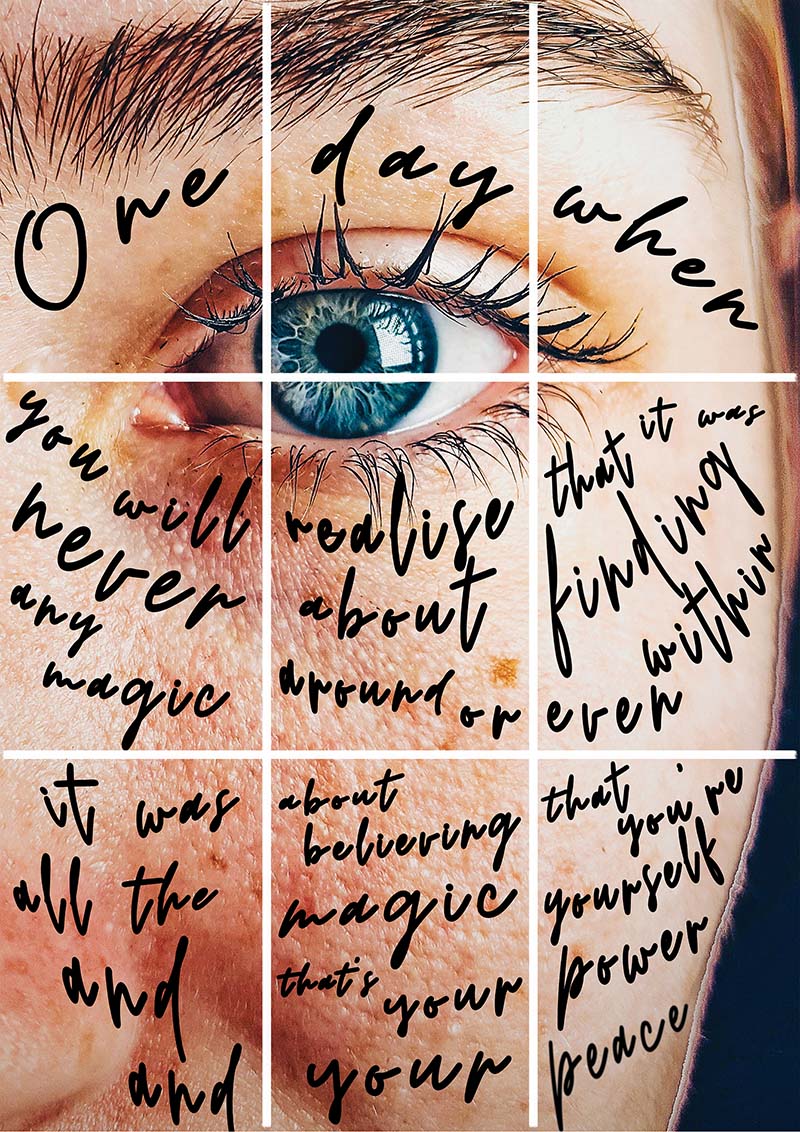 One day when
you will realise that it was
never about finding
any magic around or even within
it was about believing that you're
all the magic yourself
and that's your power
and your peace